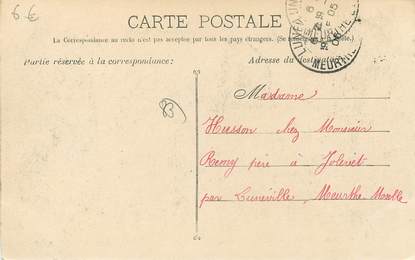 6 €
CARTE POSTALE
La Correspondance au recto n'est pas acceptée par tous les pays étrangers. (Se
Partie réservée à la correspondance:
Adresse du destinataire
LUNÉVILLE
MEURTHE
Madame
Husson chez Monsieur
Remy père à Jolivet
par Lunéville, Meurthe Moselle